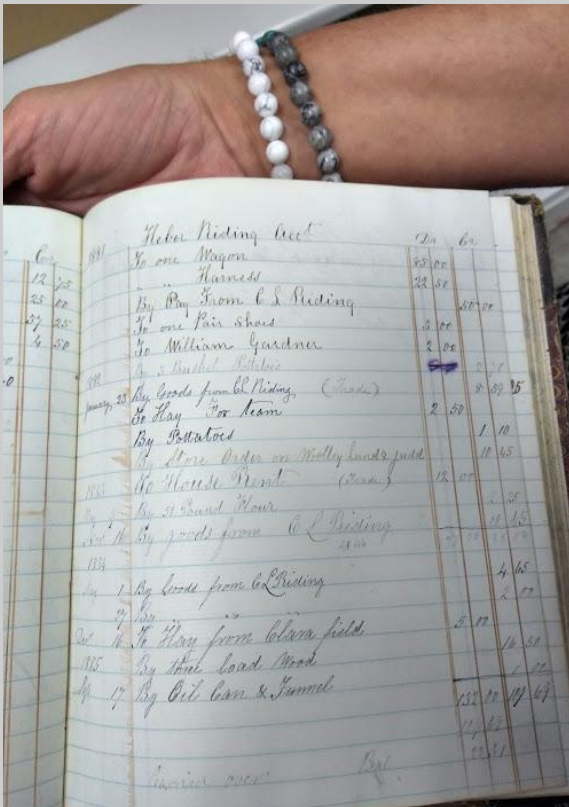 Cr.
12 75
25 00
57 25
4 50
Heber Riding Acct Dr Cr.
1881 To one Wagon 85 00
" " Harness 22 50
By Pay From C L Riding 50 00
To one Pair Shoes 3 00
To William Gardner 2 00
5 Bushel Potatoes
January 23 By Goods from CL Riding (Trade)
To Hay For team 2 50
By Pottatoes 1 10
By Store Order on Woolley Lund & Judd 10 45
1883 To House Rent (Trade) 12 00
By 50 Pound Flour
16 By goods from C L Riding
1884
1 By Goods from C L Riding 4 65
27 By " " 2 00
16 To Hay from Clara field 5 00
1885 By three load Wood 16 50
17 By Oil Can & Funnel 1 00
132 00 109 69
22 31
Carried over Bal